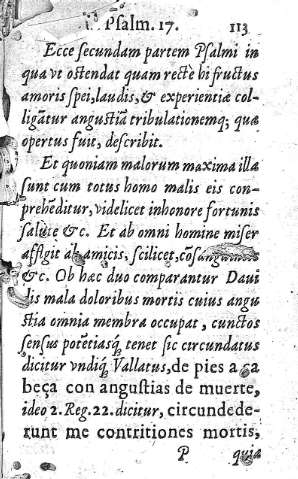 Psalm. 17. 113
Ecce secundam partem Psalmi in
qua vt ostendat quam rectè hi fructus
amoris spei, laudis, & experientiæ col-
ligãtur angustiã tribulationemq; qua
opertus fuit, describit.
Et quoniam malorum maxima illa
sunt cum totus homo malis eis con-
prehẽditur, videlicet in honore fortunis
salute &c. Et ab omni homine miser
affigit ab amicis, scilicet,
&c. Ob hæc duo comparantur Daui
dis mala doloribus mortis cuius angu
stia omnia membra occupat, cunctos
sensus potẽtiasq́; tenet sic circundatus
dicitur vndiq́; Vallatus, de pies a ca
beça con angustias de muerte,
ideo 2. Reg. 22. dicitur, circundede-
runt me contritiones mortis,
P quia